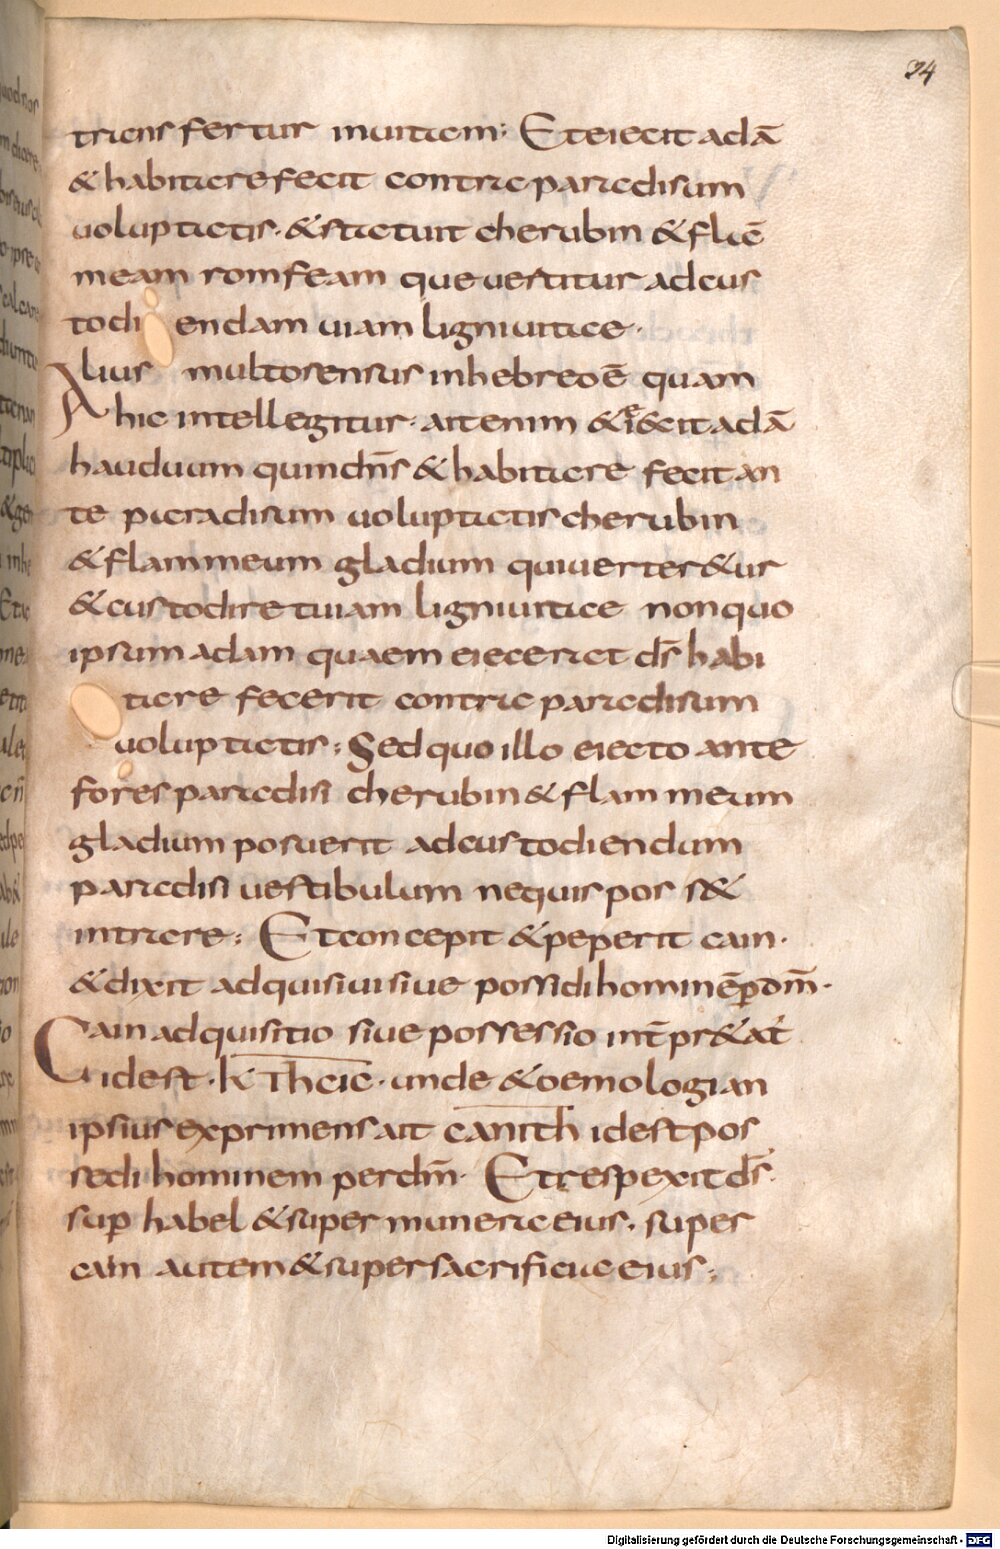 34
triens fertur inuitiam; Et eiecit adā
& habitare fecit contra paradisum
uoluptatis. & statuit cherubin & flāe
meam romfeam que uertitur ad cus
todi endam uiam ligni uitae.
Alius multo sensus in hebreo ē quam
hic intellegitur. ait enim & ei&cit adā
haud uum quin dn̄s & habitare fecit an
te paradisum uoluptatis cherubin
& flammeum gladium qui uerter&ur
& custodiret uiam ligni uitae non quo
ipsum adam quaem eiecerat ds̄ habi
tare fecerit contra paradisum
uoluptatis; Sed quo illo eiecto ante
fores paradisi cherubin & flammeum
gladium posuerit ad custodiendum
paradisi uestibulum nequis pos s&
intrare; Et concepit & peperit cain.
& dixit adquisiui siue possidi hominē ꝑ dm̄.
Cain adquisitio siue possessio int̄pr&at̄
idest. k Theie. unde & oemologian
ipsius exprimens ait canith idest pos
sedi hominem per dm̄. Et respexit ds̄.
suꝑ habel & super munera eius. super
cain autem & super sacrificia eius;
Digitalisierung gefördert durch die Deutsche Forschungsgemeinschaft - DFG